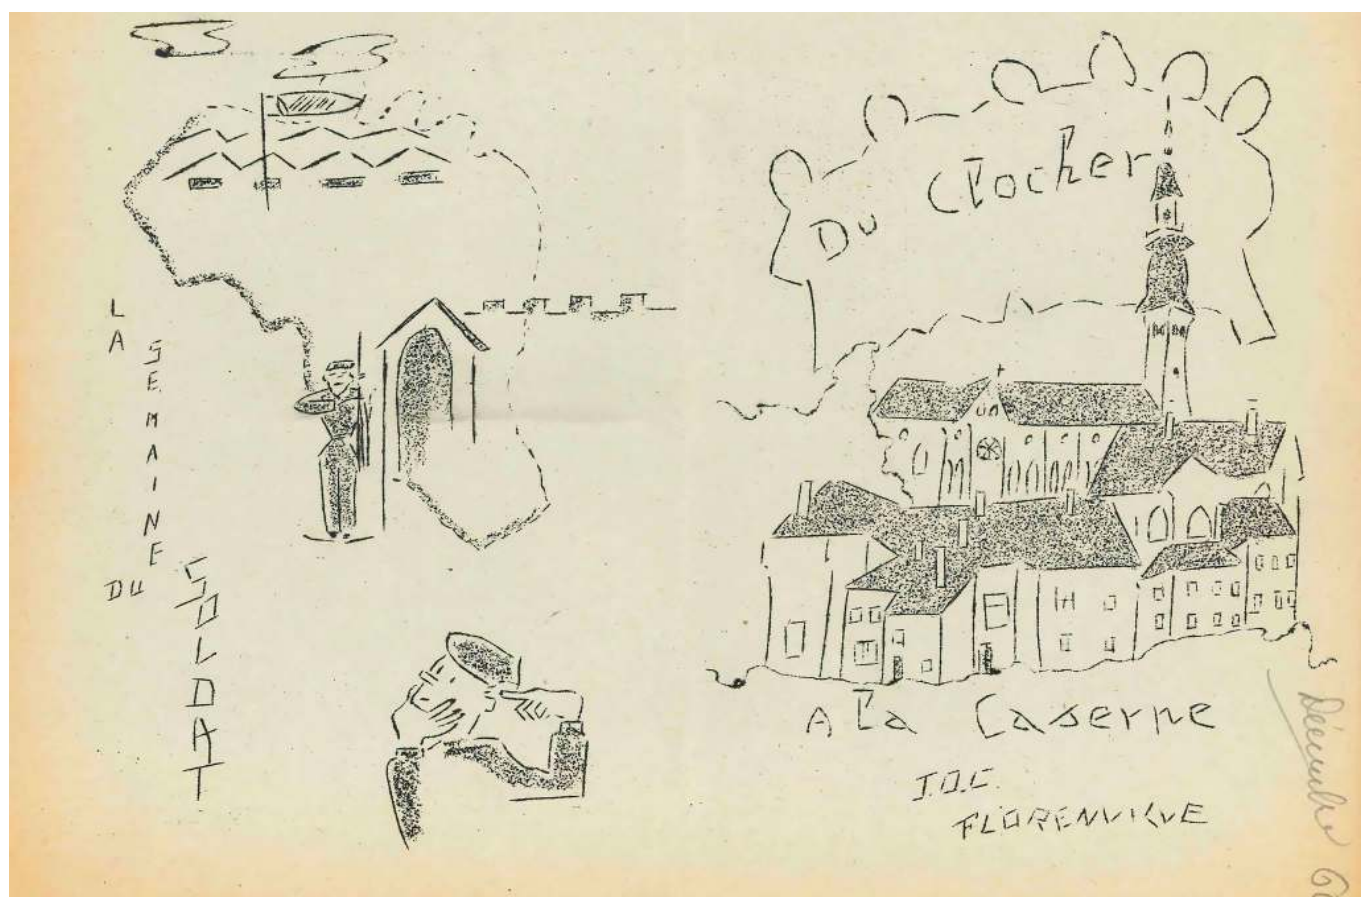 LA
SEMAINE
DU
SOLDAT
Du Clocher
A La Caserne
J.O.C.
FLORENVILLE
Décembre